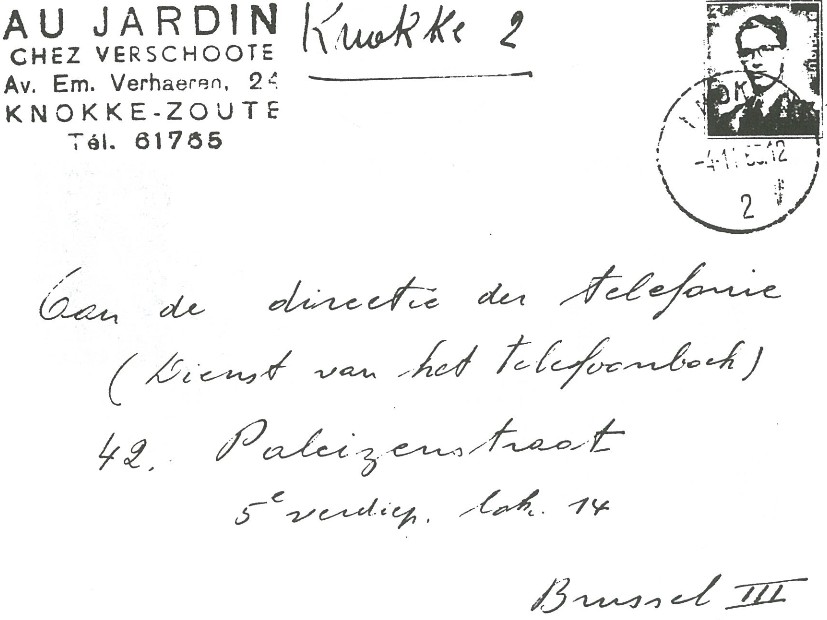 AU JARDIN
CHEZ VERSCHOOTE
Av. Em. Verhaeren, 24
KNOKKE-ZOUTE
Tél. 61765
Knokke 2
-4-11 12
2
Aan de directie der telefonie
(Dienst van het telefoonboek)
42. Paleizenstraat
5e verdiep. lok. 14
Brussel III